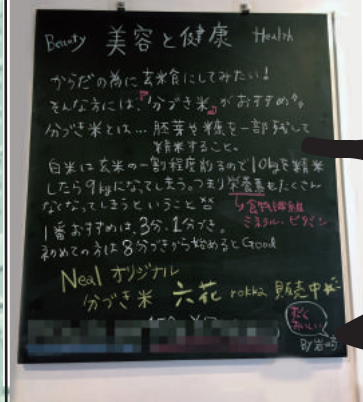 Beauty 美容と健康 Health
からだの為に玄米食にしてみたい!
そんな方には、「分づき米」がおすすめ
分づき米とは… 胚芽や糠を一部残して
精米すること。
白米は玄米の一割程度削るので10kgを精米
したら9kgになってしまう。つまり栄養素もたくさん
なくなってしまうということ
↳食物繊維
ミネラル・ビタミン
1番おすすめは、3分、1分づき。
初めての方は8分づきから始めるとGood
Neal オリジナル
分づき米 六花 rokka 販売中
おいしい
By岩崎